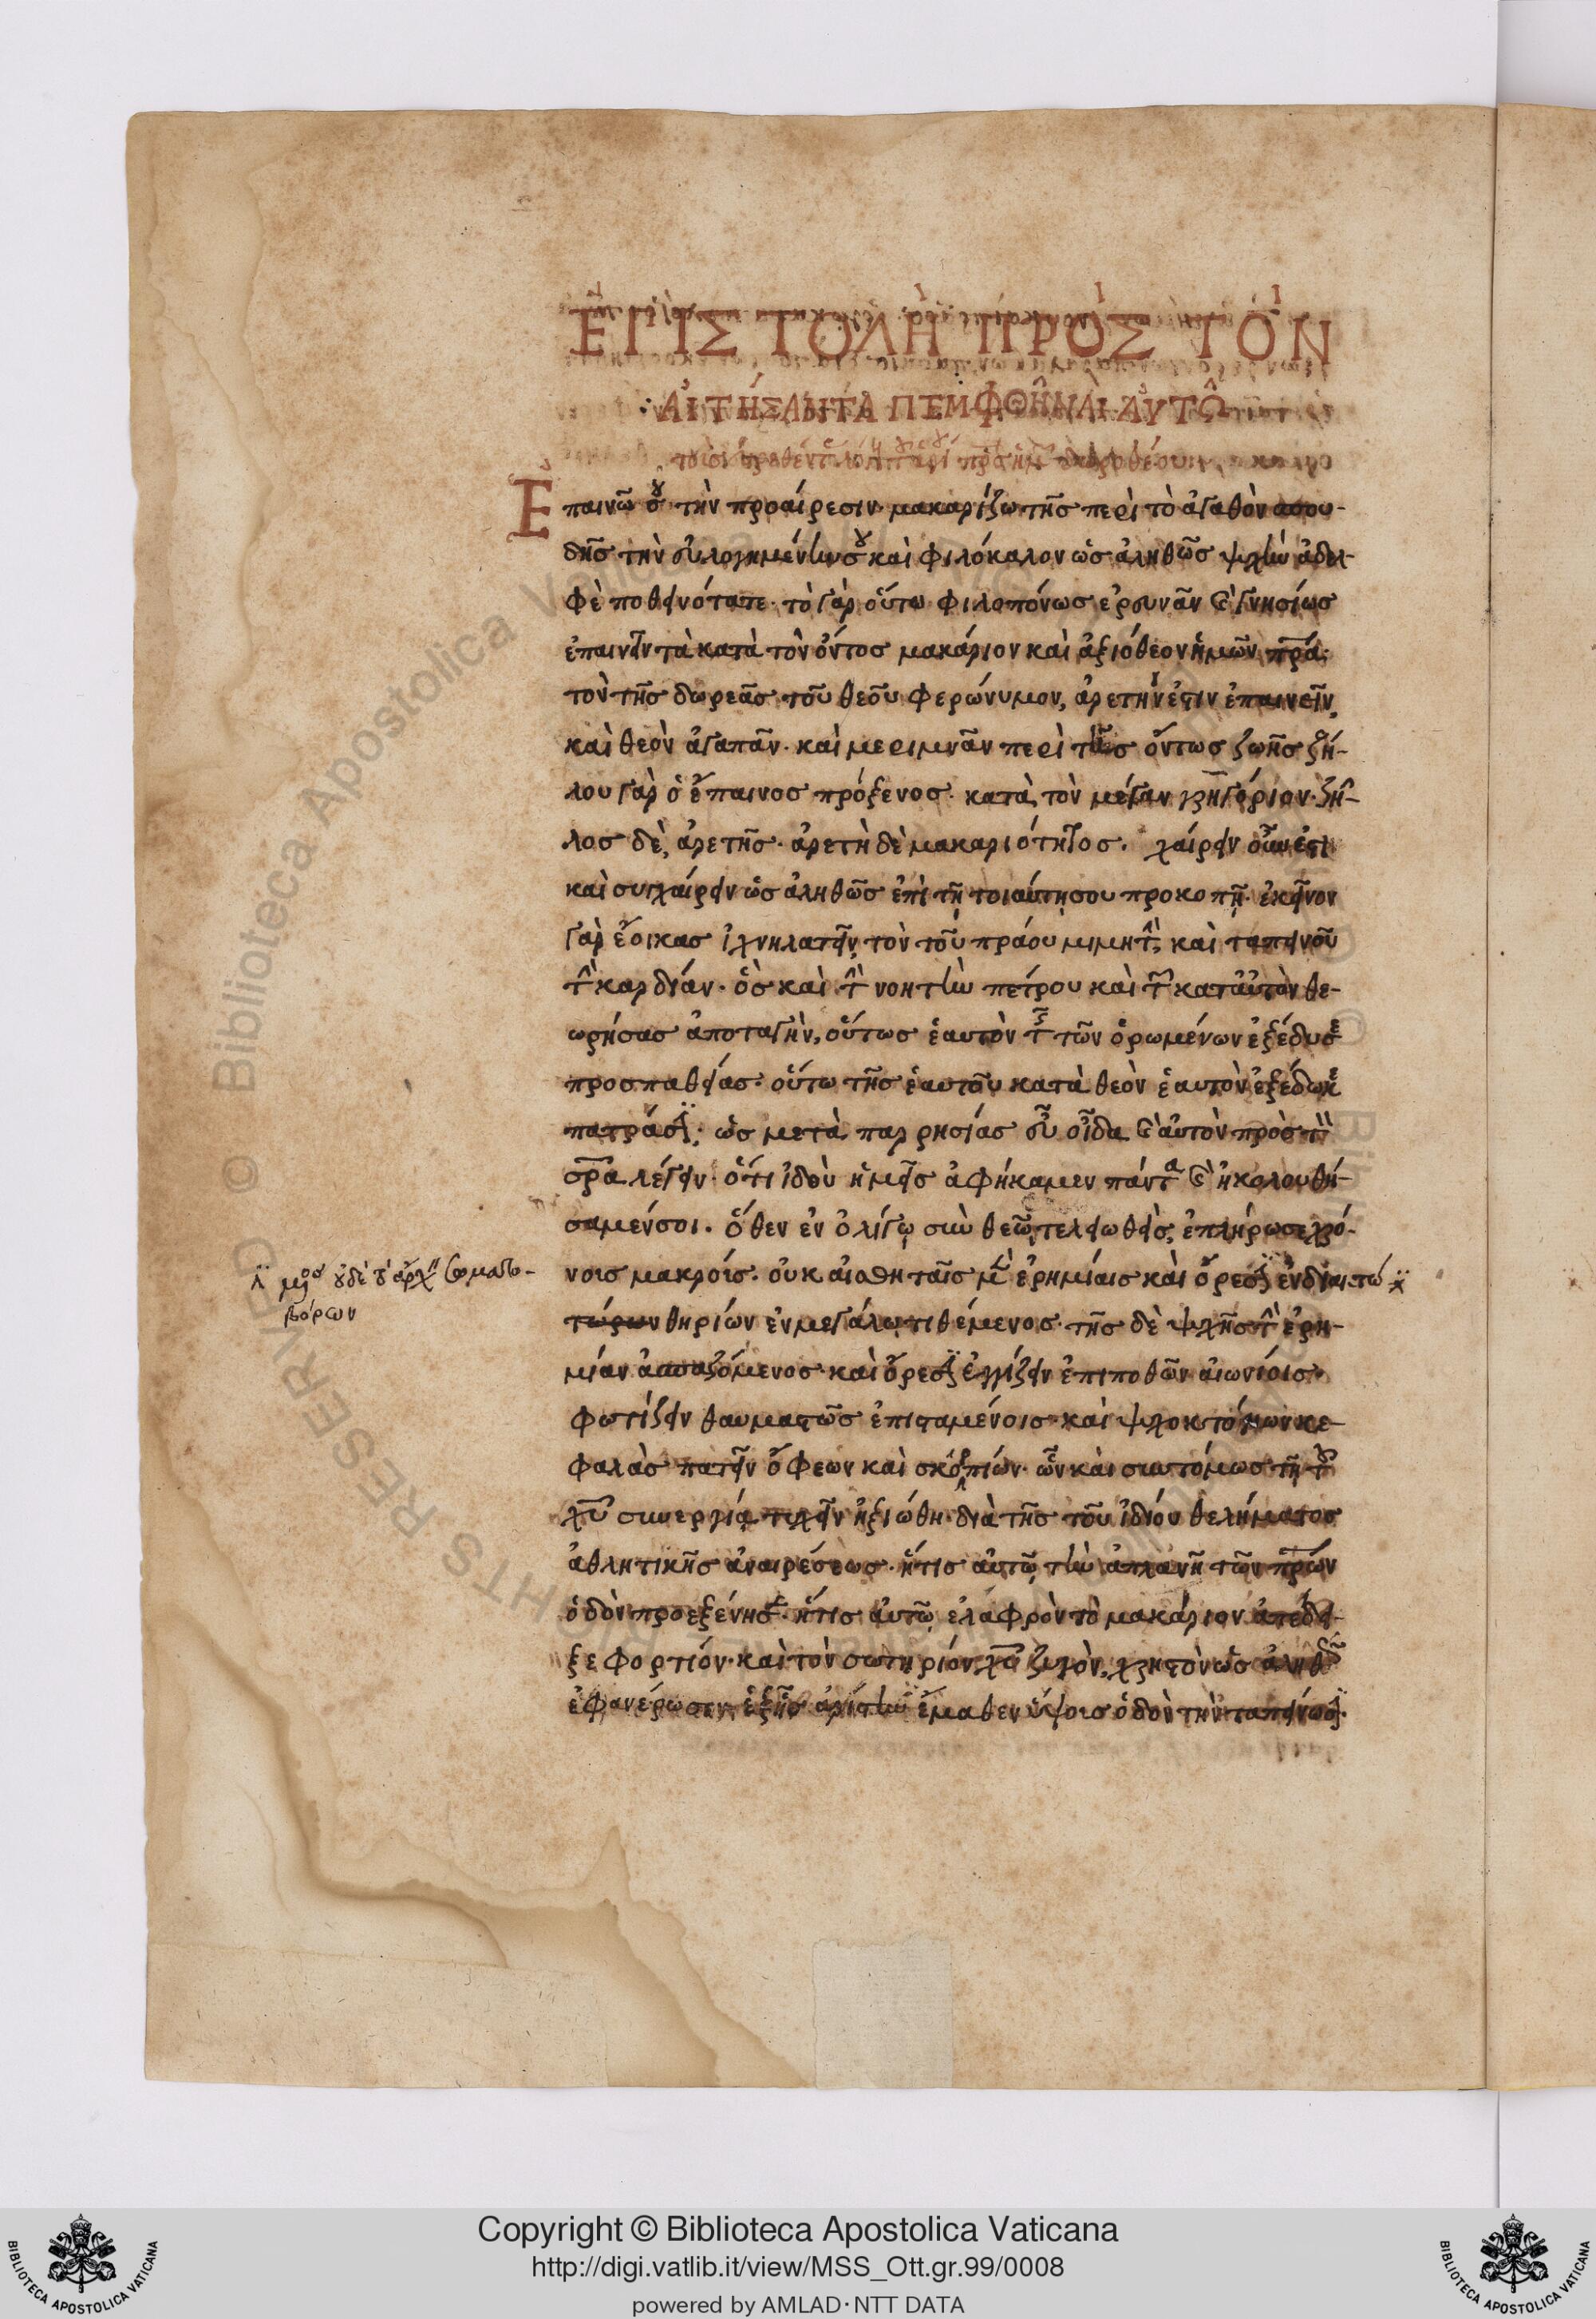 ἘΠΙΣΤΟΛῊ ΠΡῸΣ ΤῸΝ
ΑἸΤΉΣΑΝΤΑ ΠΕΜΦΘΗ͂ΝΑΙ ΑΥ̓ΤΩ͂
Ἐπαινῶ σου τὴν προαίρεσιν· μακαρίζω τῆς περὶ τὸ ἀγαθὸν σπου-
δῆς τὴν εὐλογημένην σου καὶ φιλόκαλον ὡς ἀληθῶς ψυχὴν ἀδελ-
φὲ ποθεινότατε· τὸ γὰρ οὕτω φιλοπόνως ἐρευνᾶν καὶ γνησίως
ἐπαινεῖν τὰ κατὰ τὸν ὄντος μακάριον καὶ ἀξιόθεον ἡμῶν πρα·
τὸν τῆς δωρεᾶς τοῦ θεοῦ φερώνυμον, ἀρετήν ἐστιν ἐπαινεῖν,
καὶ θεὸν ἀγαπᾶν· καὶ μεριμνᾶν περὶ τῆς ὄντως ζωῆς ζή-
λου γὰρ ὁ ἔπαινος πρόξενος· κατὰ τὸν μέγαν γρηγόριον· ζῆ-
λος δὲ, ἀρετῆς· ἀρετὴ δὲ μακαριότητος. χαίρειν οὖν ἐστι
καὶ συγχαίρειν ὡς ἀληθῶς ἐπὶ τῇ τοιαύτῃ σου προκοπῇ· ἐκεῖνον
γὰρ ἔοικας ἰχνηλατεῖν, τὸν τοῦ πράου μιμητὴν, καὶ ταπεινοῦ
τὴν καρδίαν· ὃς καὶ τὴν νοητὴν πέτρου καὶ τῶν κατ' αὐτὸν θε-
ωρήσας ἀποταγὴν, οὕτως ἑαυτὸν τῆς τῶν ὁρωμένων ἐξέδυσε
προσπαθείας· οὕτω τῆς ἑαυτοῦ κατὰ θεὸν ἑαυτὸν ἐξέδωκε
πατράσιν· ὡς μετὰ παρρησίας εὖ οἶδα καὶ αὐτὸν πρὸς τὸν
σρα λέγειν· ὅτι ἰδοὺ ἡμεῖς ἀφήκαμεν πάντα καὶ ἠκολουθή-
σαμέν σοι. ὅθεν ἐν ὀλίγῳ σὺν θεῷ τελειωθεὶς, ἐπλήρωσε χρό-
νοις μακροίς· οὐκ αἰσθηταῖς μὲν ἐρημίαις καὶ ὄρεσιν ἐνδιαιτώ
τώρων θηρίων ἐν μεγάλῳ τιθέμενος· τῆς δὲ ψυχῆς τὴν ἐρη-
μίαν ἀσπαζόμενος· καὶ ὄρεσιν ἐγγίζειν ἐπιποθῶν αἰωνίοις·
φωτίζειν θαυμαστῶς ἐπισταμένοις· καὶ ψυχοκτόνων κε-
φαλὰς πατεῖν ὄφεων καὶ σκορπίων· ὧν καὶ συντόμως τῇ τοῦ
χυ συνεργίᾳ τυχεῖν ἠξιώθη· διὰ τῆς τοῦ ἰδίου θελήματος
ἀθλητικῆς ἀναιρέσεως· ἥτις αὐτῷ τὴν ἀπλανῆ τῶν πρων
ὁδὸν προεξένησεν· ἥτις αὐτῷ ἐλαφρὸν τὸ μακάριον ἀπέδει-
ξε φορτίον· καὶ τὸν σωτηριον, χυ ζυγὸν, χρηστὸν ὡς ἀληθῶς
ἐφανέρωσεν· ἐξ ἧς ἀρίστην ἔμαθεν ὕψους ὁδὸν τὴν ταπείνωσιν.
βόρων
Copyright © Biblioteca Apostolica Vaticana
http://digi.vatlib.it/view/MSS_Ott.gr.99/0008
powered by AMLAD·NTT DATA
BIBLIOTECA APOSTOLICA VATICANA
BIBLIOTECA APOSTOLICA VATICANA